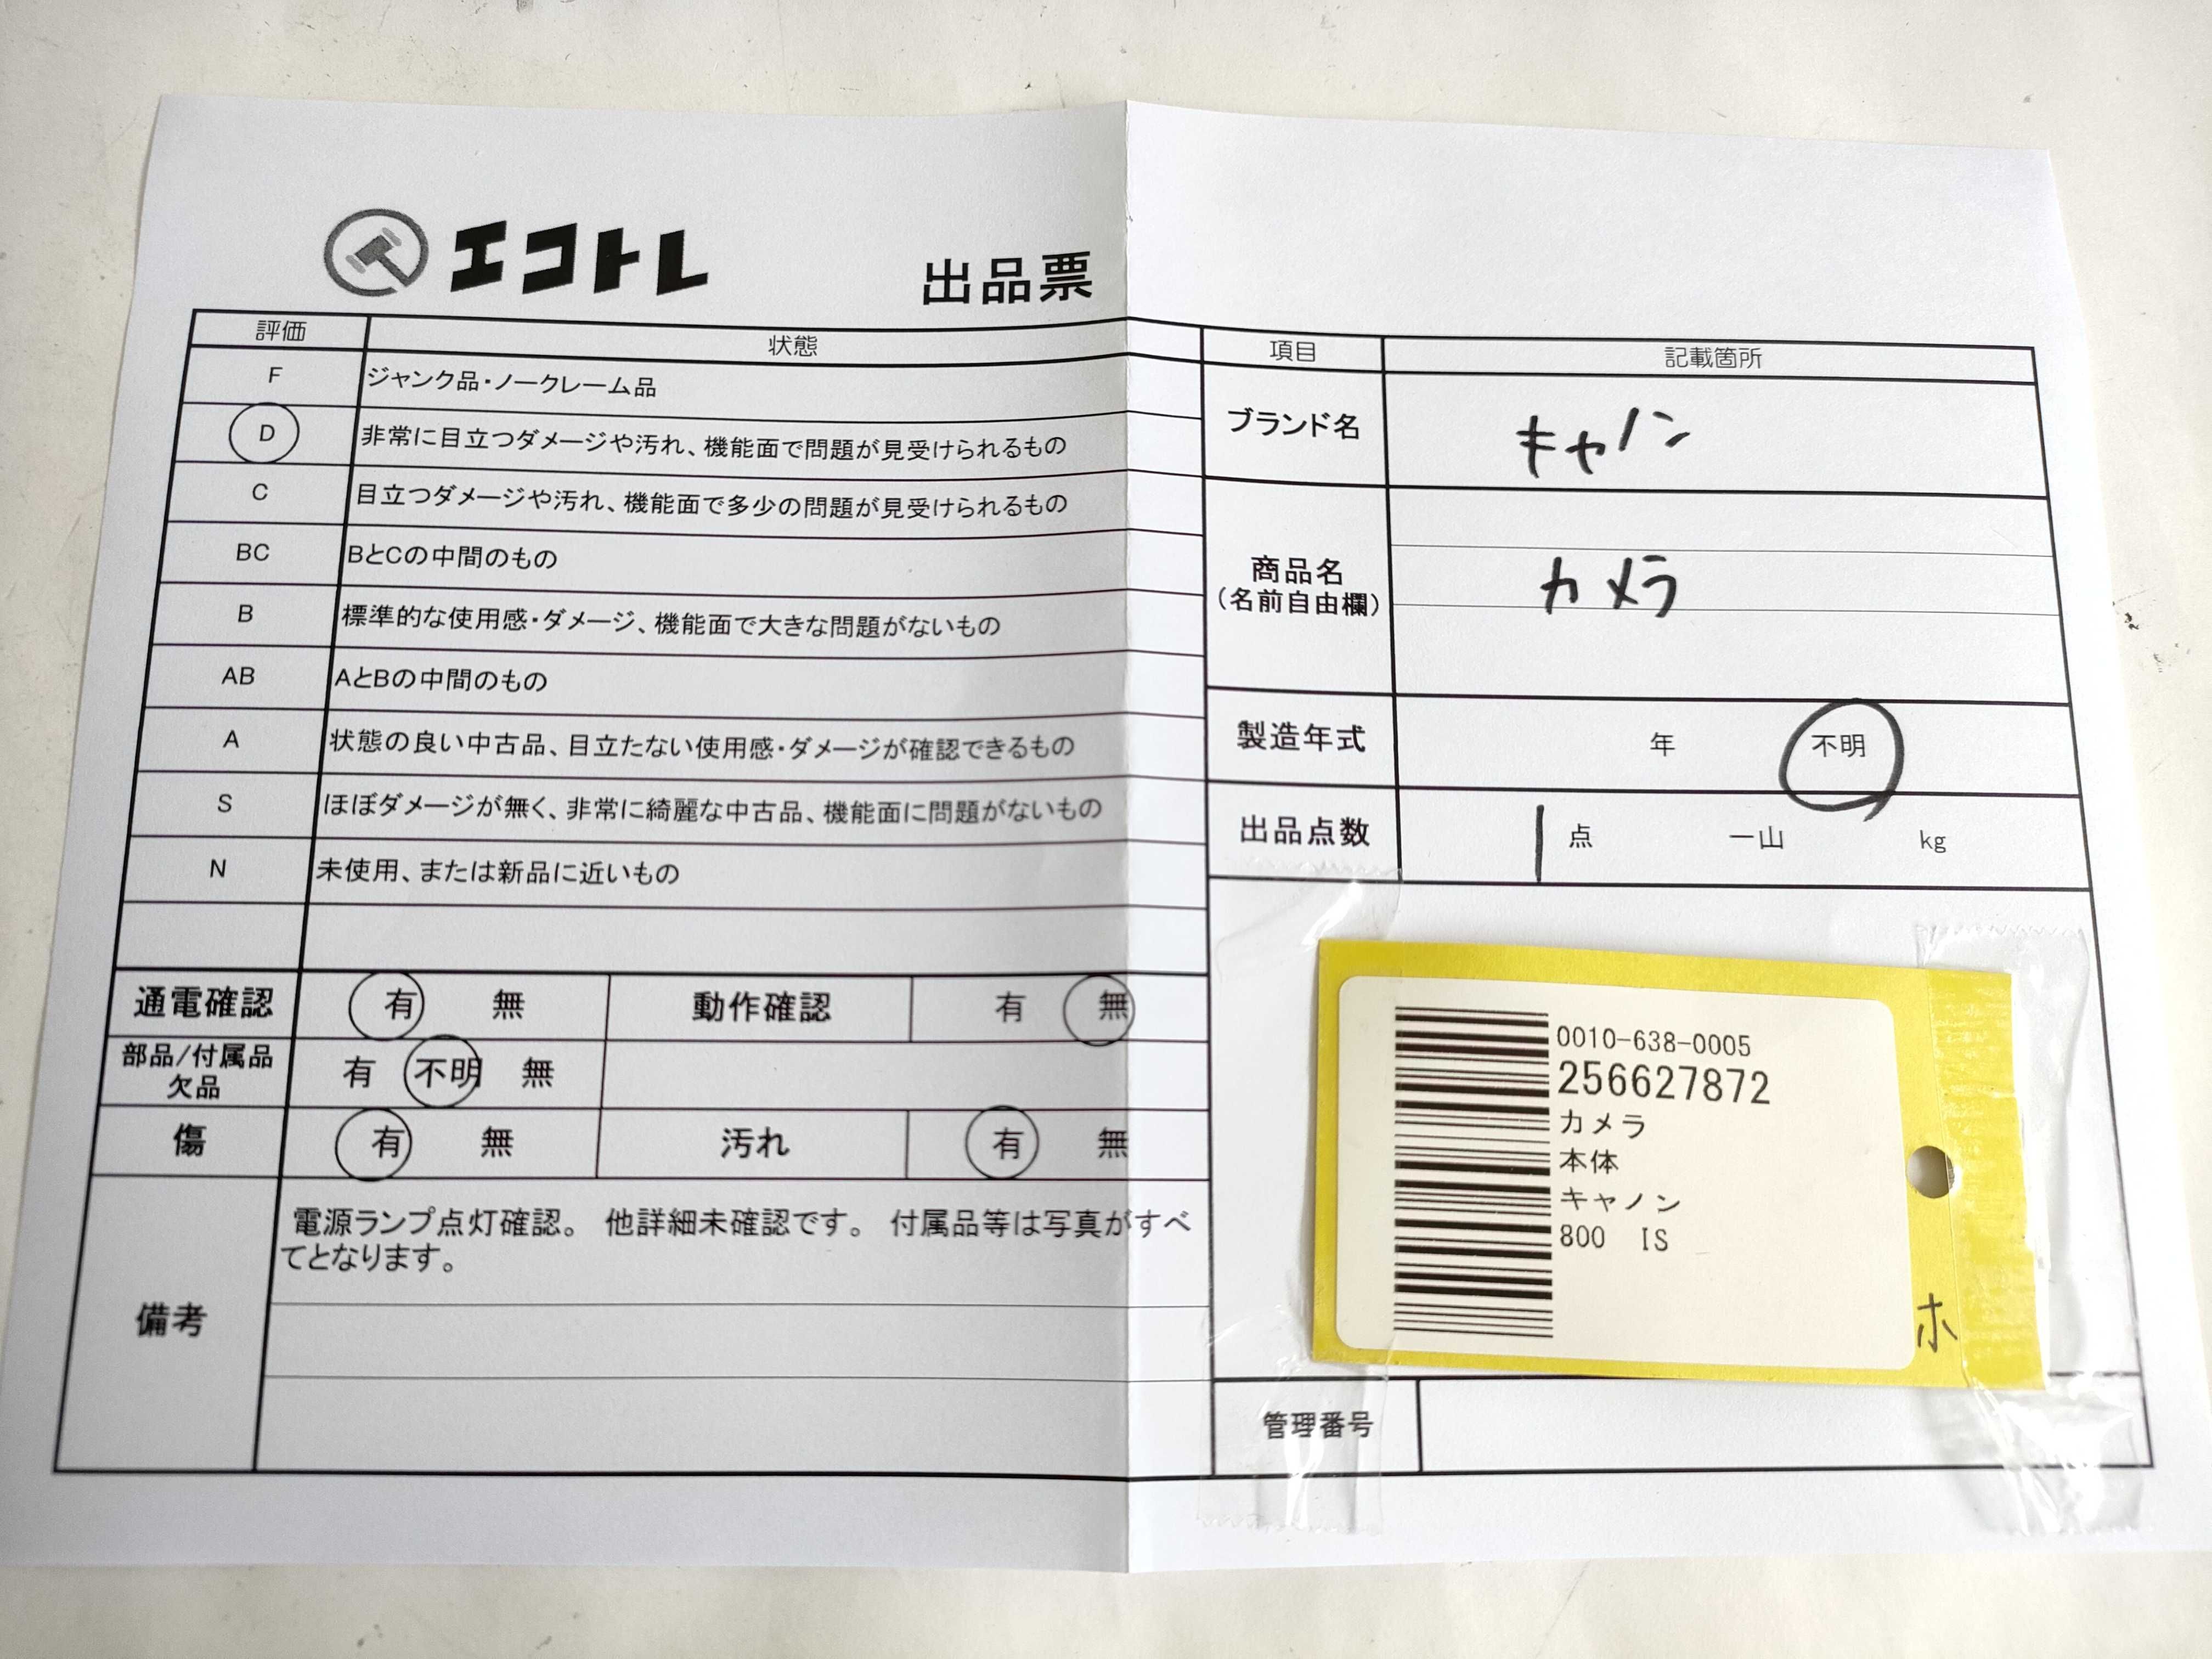 エコトレ
出品票
評価 状態
F ジャンク品・ノークレーム品
D 非常に目立つダメージや汚れ、機能面で問題が見受けられるもの
C 目立つダメージや汚れ、機能面で多少の問題が見受けられるもの
BC BとCの中間のもの
B 標準的な使用感・ダメージ、機能面で大きな問題がないもの
AB AとBの中間のもの
A 状態の良い中古品、目立たない使用感・ダメージが確認できるもの
S ほぼダメージが無く、非常に綺麗な中古品、機能面に問題がないもの
N 未使用、または新品に近いもの
通電確認 有 無 動作確認 有 無
部品/付属品
欠品
有 不明 無
傷 有 無 汚れ 有 無
備考
電源ランプ点灯確認。 他詳細未確認です。 付属品等は写真がすべ
てとなります。
項目 記載箇所
ブランド名 キャノン
商品名
(名前自由欄)
カメラ
製造年式 年 不明
出品点数 1 点 一山 kg
0010-638-0005
256627872
カメラ
本体
キャノン
800 IS
ホ
管理番号